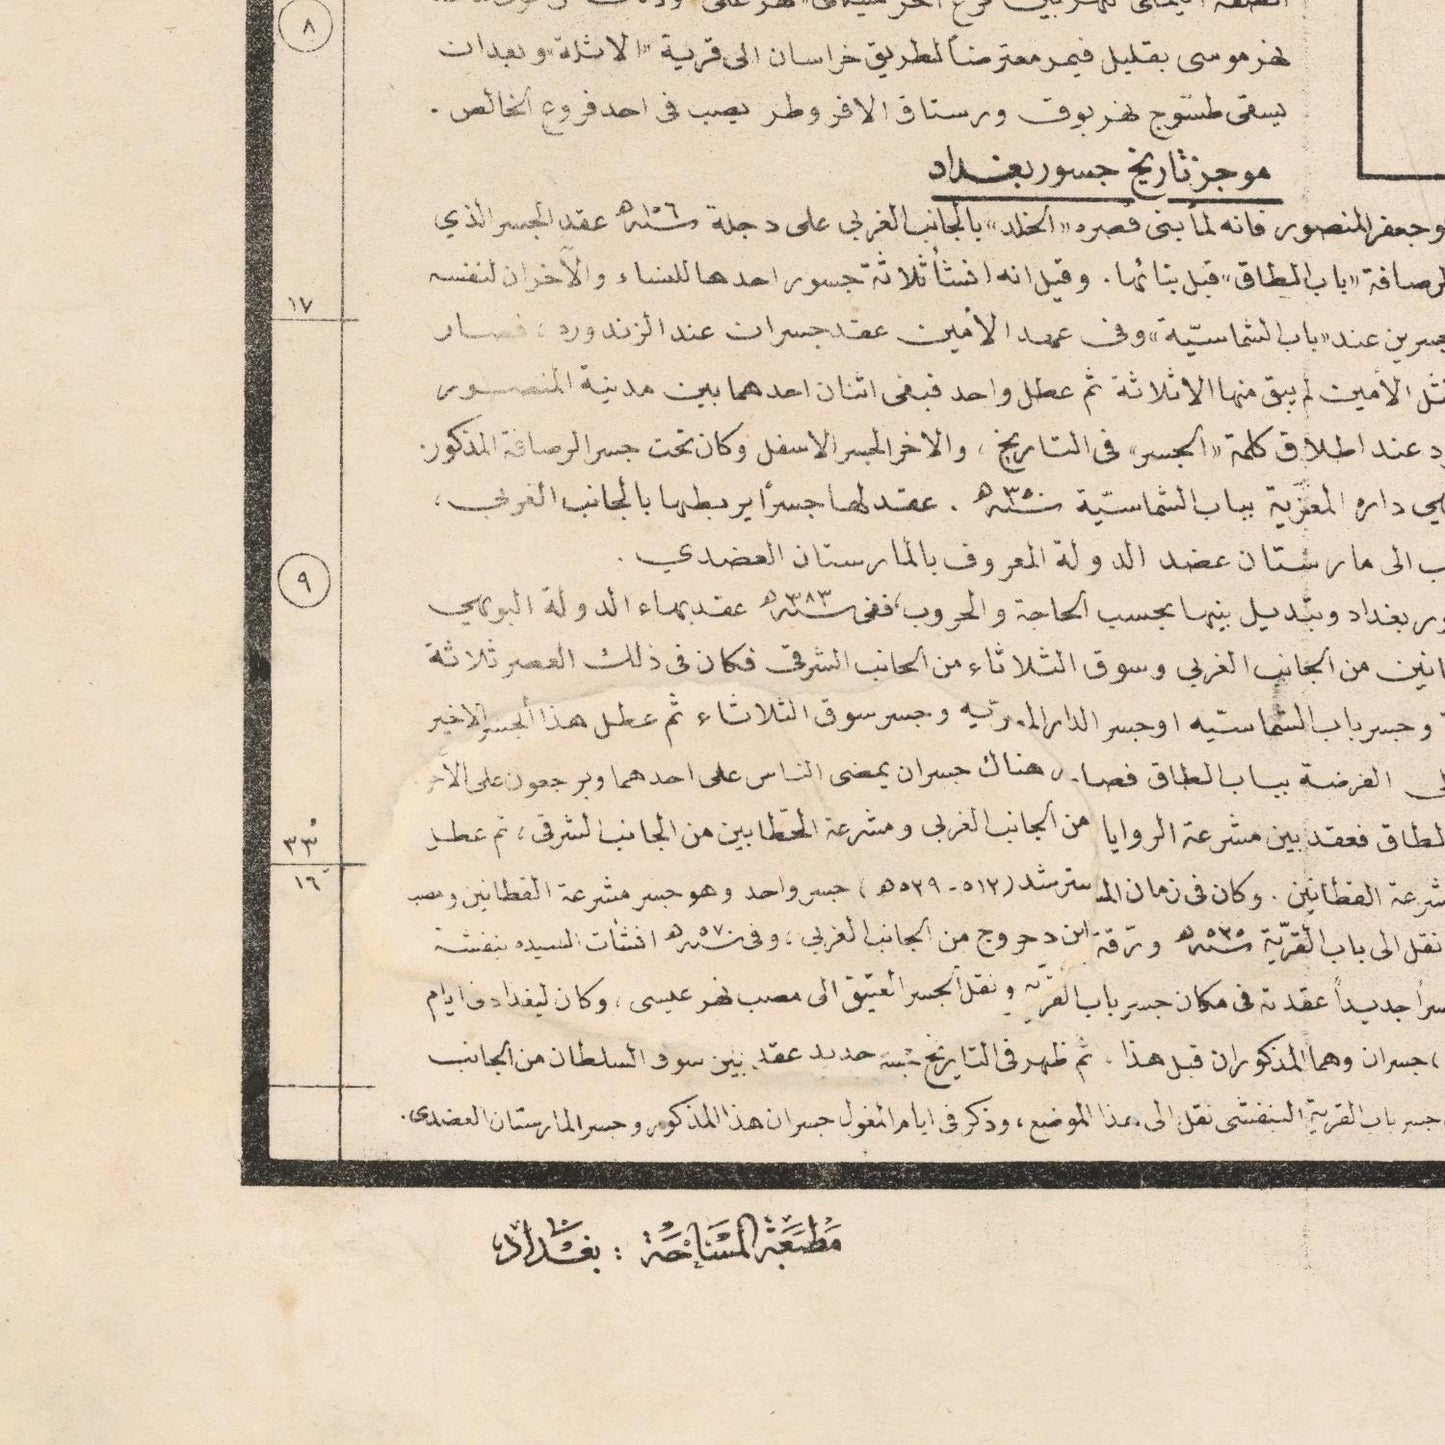 ٨
نهر موسى بقليل فيمر معترضاً لطريق خراسان الى قرية «الاثلة» وبعد ان
يسقى طسّوج نهر بوق ورستاق الافروطر يصب فى احد فروع الخالص .
موجز تاريخ جسور بغداد
وجعفر المنصور فانه لما بنى قصره «الخلد» بالجانب الغربي على دجلة سنة ١٥٦ﻫ عقد الجسر الذي
لرصافة «باب الطاق» قبل بنائها . وقيل انه انشأ ثلاثة جسور احدها للنساء والآخران لنفسه
١٧
جسرين عند «باب الشماسيّة» وفى عهد الأمين عقد جسران عند الزندورد ؛ فصار
الأمين لم يبق منها الا ثلاثة ثم عطل واحد فبقى اثنان احدهما بين مدينة المنصور
عند اطلاق كلمة «الجسر» فى التاريخ ، والاخر الجسر الاسفل وكان تحت جسر الرصافة المذكور.
داره المعزّية بباب الشماسيّة سنة ٣٥٠ﻫ . عقد لها جسرًا يربطها بالجانب الغربي ،
الى مارستان عضد الدولة المعروف بالمارستان العضدي .
٩
بغداد وتبديل بينها بحسب الحاجة والحروب، ففى سنة ٣٨٣ﻫ عقد بهاء الدولة البويهي
من الجانب الغربي وسوق الثلاثاء من الجانب الشرقى فكان فى ذلك العصر ثلاثة
وجسر باب الشماسيه او جسر الدار وجسر سوق الثلاثاء ثم عطل هذا الجسر الاخير
الفرضة بباب الطاق فصار هناك جسران يمضى الناس على احدهما ويرجعون على الآخر
لطاق فعقد بين مشرعة الروايا من الجانب الغربي ومشرعة الحطّابين من الجانب الشرقى ، ثم عطل
٣٣ْ
١٦
القطانين . وكان فى زمان المسترشد (٥١٢ - ٥٢٩ﻫ) جسر واحد وهو جسر مشرعة القطانين
نقل الى باب القريّة سنة ٥٣٥ﻫ ورقة ابن دحروج من الجانب الغربي ، وفى سنة ٥٧٠ﻫ انشأت السيده بنفشة
جديداً عقدته فى مكان جسر باب القريّه ونقل الجسر العتيق الى مصب نهر عيسى ، وكان لبغداد فى ايام
) جسران وهما المذكوران قبل هذا . ثم ظهر فى التاريخ جسر جديد عقد بين سوق السلطان من الجانب
جسر باب القرية البنفشى نقل الى هذا الموضع ، وذكر فى ايام المغول جسران هذا المذكور وجسر المارستان العضدى .
مطبعة المساحة : بغداد